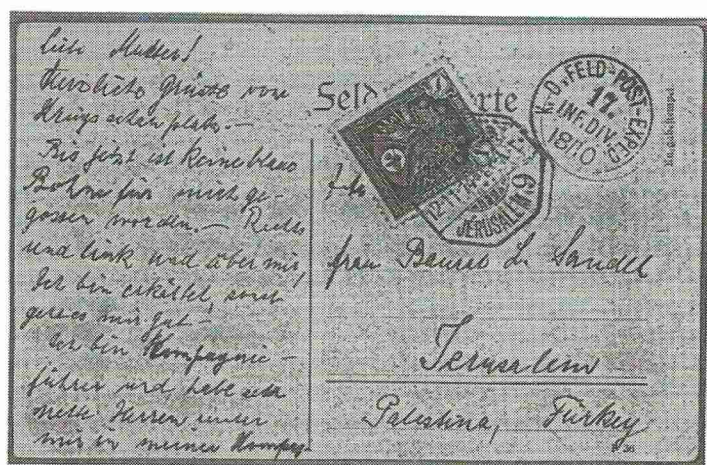 Liebe Mutter!
Herzliche Grüsse vom
Kriegsschauplatz.—
Bis jetzt ist keine blaue
Bohne für mich ge-
gossen worden.— Rechts
und link und über mir,
Ich bin erkältet, sonst
geht es mir gut—
Ich bin Kompagnie-
führer und habe sehr
nette Herren unter
mir in meiner Kompag-
Feld rte
K.D. FELD-POST-EXPED
17.
INF. DIV.
JERUSALEM 9
Frau Baurat Sandel
Jerusalem
Palestina, Türkey